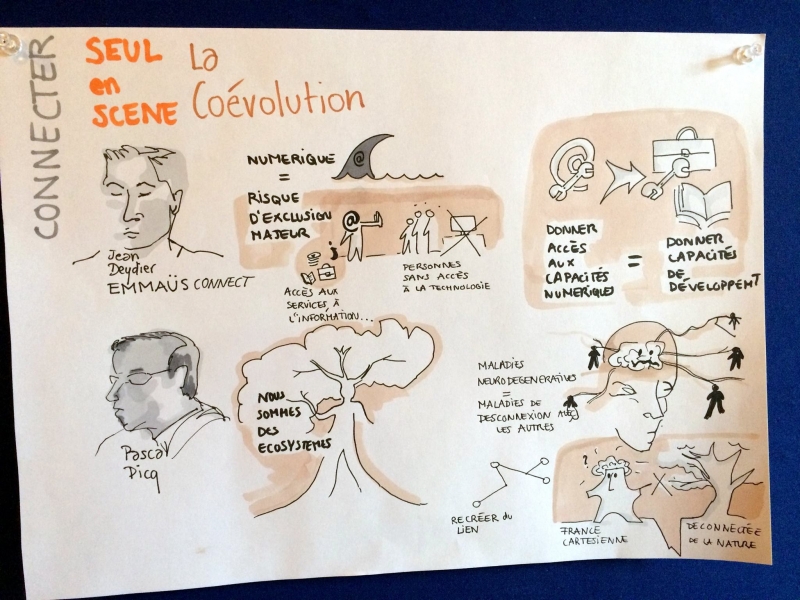 CONNECTER
SEUL
en
SCENE
La
Coévolution
Jean
Deydier
EMMAÜS CONNECT
NUMERIQUE
=
RISQUE
D'EXCLUSION
MAJEUR
@
@
i
ACCÈS AUX
SERVICES, À
L'INFORMATION...
PERSONNES
SANS ACCÈS
À LA TECHNOLOGIE
DONNER
ACCÈS
AUX
CAPACITÉS
NUMERIQUES
=
DONNER
CAPACITÉS
DE
DÉVELOPPEMT
Pascal
Picq
NOUS
SOMMES
DES
ECOSYSTEMES
MALADIES
NEURODEGENERATIVES
=
MALADIES DE
DESCONNEXION AVEC
LES AUTRES
RECRÉER du
LIEN
?
FRANCE
CARTESIENNE
DECONNECTÉE
DE LA NATURE